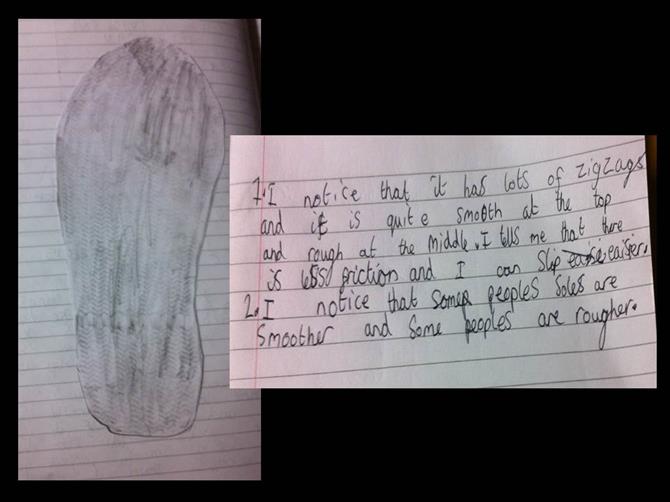 1. I notice that it has lots of zigzags
and it is quite smooth at the top
and rough at the middle. I tells me that there
is less friction and I can slip easier.
2. I notice that some peoples soles are
smoother and some peoples are rougher.